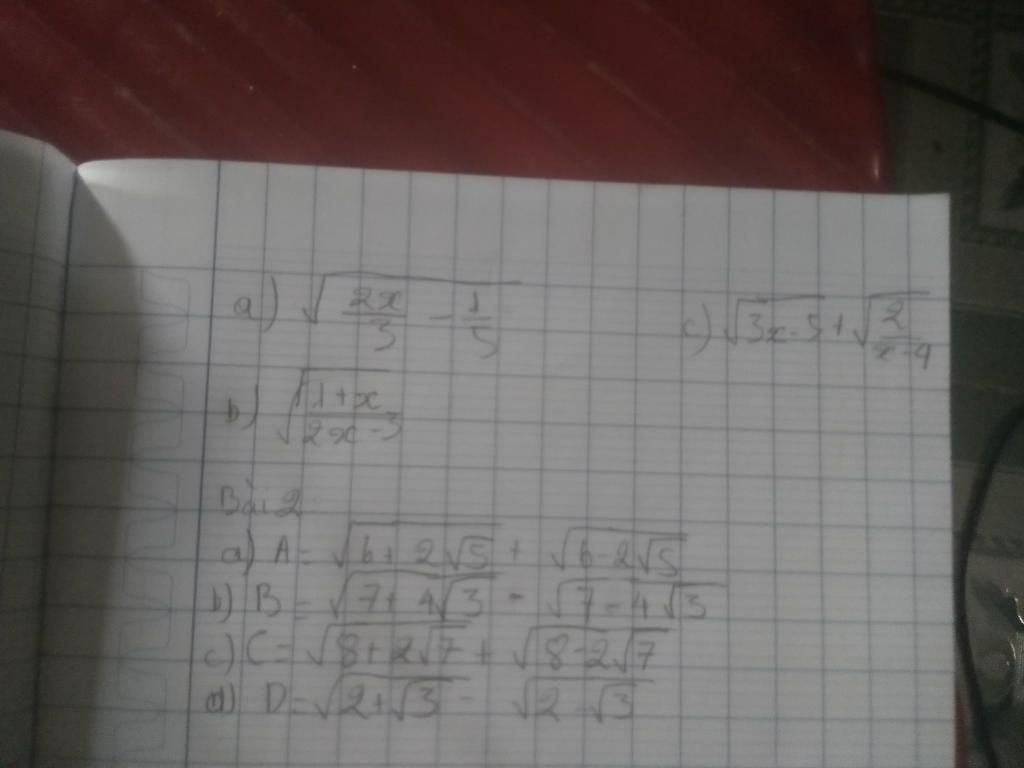 a) √(2x/3 - 1/5) c) √(3x-5) + √(2/(x-4))
b) √((1+x)/(2x-3))
Bài 2
a) A = √(6+2√5) + √(6-2√5)
b) B = √(7+4√3) - √(7-4√3)
c) C = √(8+2√7) + √(8-2√7)
d) D = √(2+√3) - √(2-√3)